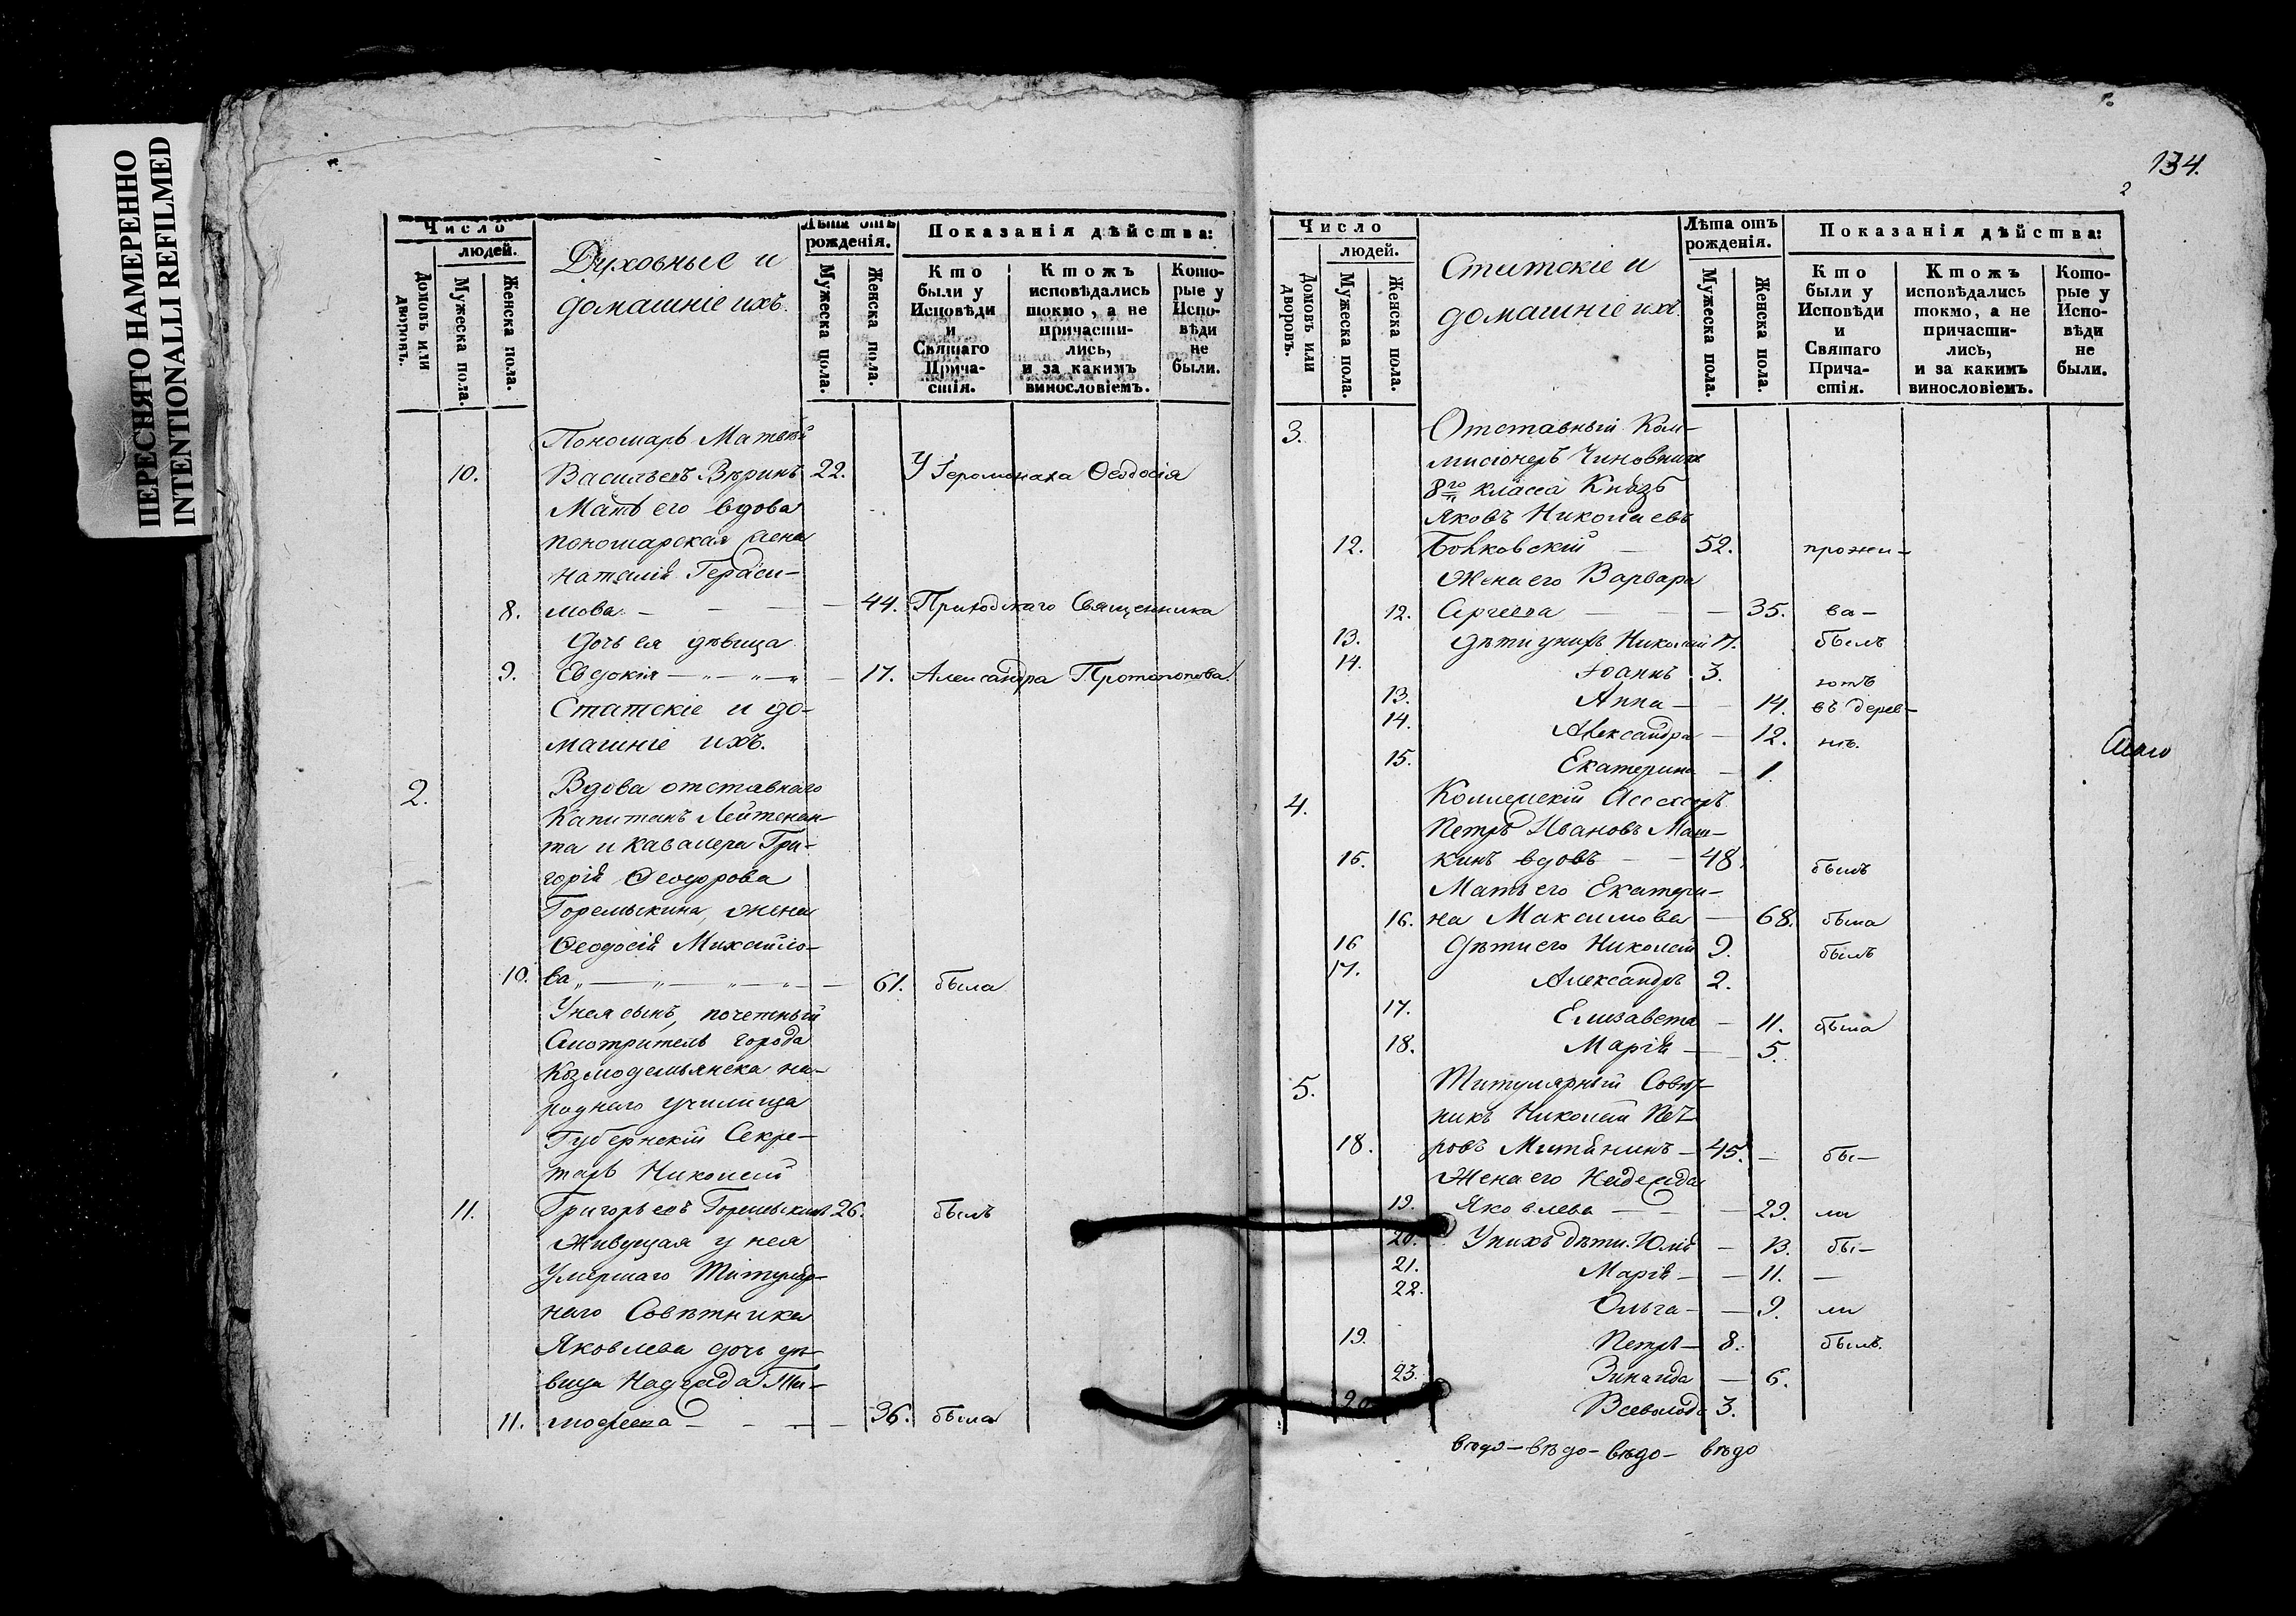 ПЕРЕСНЯТО НАМЕРЕННО
INTENTIONALLI REFILMED
Число
людей.
Домовъ или дворовъ.
Мужеска пола.
Женска пола.
Духовные и
домашніе ихъ.
Лѣта отъ
рожденія.
Мужеска пола.
Женска пола.
Показанія дѣйства:
Кто
были у
Исповѣди
и
Святаго
Прича-
стія.
Ктожъ
исповѣдались
токмо, а не
причасти-
лись,
и за какимъ
винословіемъ.
Кото-
рые у
Испо-
вѣди
не
были.
Пономарь Матвѣй
10. Васильевъ Вѣринъ 22. У Іеромонаха Ѳеодосія
Мать его вдова
пономарская жена
Наталія Гераси-
8. мова — 44. Приходскаго Священника
Дочь ея дѣвица
9. Евдокія — 17. Александра Протопопова.
Статскіе и до-
машніе ихъ.
2. Вдова отставнаго
Капитанъ Лейтенан-
та и кавалера Гри-
горія Ѳеодорова
Горемыкина, жена
Ѳеодосія Михайло-
10. ва — 61. была
У нея сынъ, почетный
Смотритель города
Козмодемьянска на-
роднаго училища
Губернскій Секре-
тарь Николай
11. Григорьевъ Горемыкинъ 26. былъ
Живущая у нея
Умершаго Титуляр-
наго Совѣтника
Яковлева дочь дѣ-
вица Надежда Ти-
11. мофеева — 36. была
134.
2
Число
людей.
Домовъ или дворовъ.
Мужеска пола.
Женска пола.
Статскіе и
домашніе ихъ.
Лѣта отъ
рожденія.
Мужеска пола.
Женска пола.
Показанія дѣйства:
Кто
были у
Исповѣди
и
Святаго
Прича-
стія.
Ктожъ
исповѣдались
токмо, а не
причасти-
лись,
и за какимъ
винословіемъ.
Кото-
рые у
Испо-
вѣди
не
были.
3. Отставный Ком-
мисіонеръ Чиновникъ
8го класса Князь
Яковъ Николаевъ
12. Болховскій — 52. прожи-
Жена его Варвара
12. Сергеева — 35. ва-
13. Дѣти у нихъ Николай 17. былъ
14. Іоаннъ 3. ютъ
13. Анна — 14. въ дерев-
14. Александра — 12. нѣ.
15. Екатерина — 1.
4. Коллежскій Асессоръ
Петръ Ивановъ Маш-
15. кинъ вдовъ — 48. былъ
Мать его Екатери-
16. на Максимова — 68. была
16 Дѣти его Николай 9. былъ
17. Александръ 2.
17. Елизавета — 11. была
18. Марія — 5.
5. Титулярный Совѣт-
никъ Николай Пет-
18. ровъ Митянинъ — 45. — бы-
Жена его Надежда
19. Яковлева — 29. ли
20. У нихъ дѣти. Юлія — 13. бы-
21. Марія — 11. —
22. Ольга — 9. ли
19. Петръ — 8. былъ.
23. Зинаида — 6.
20. Всеволодъ 3.
вѣдо - вѣдо - вѣдо - вѣдо